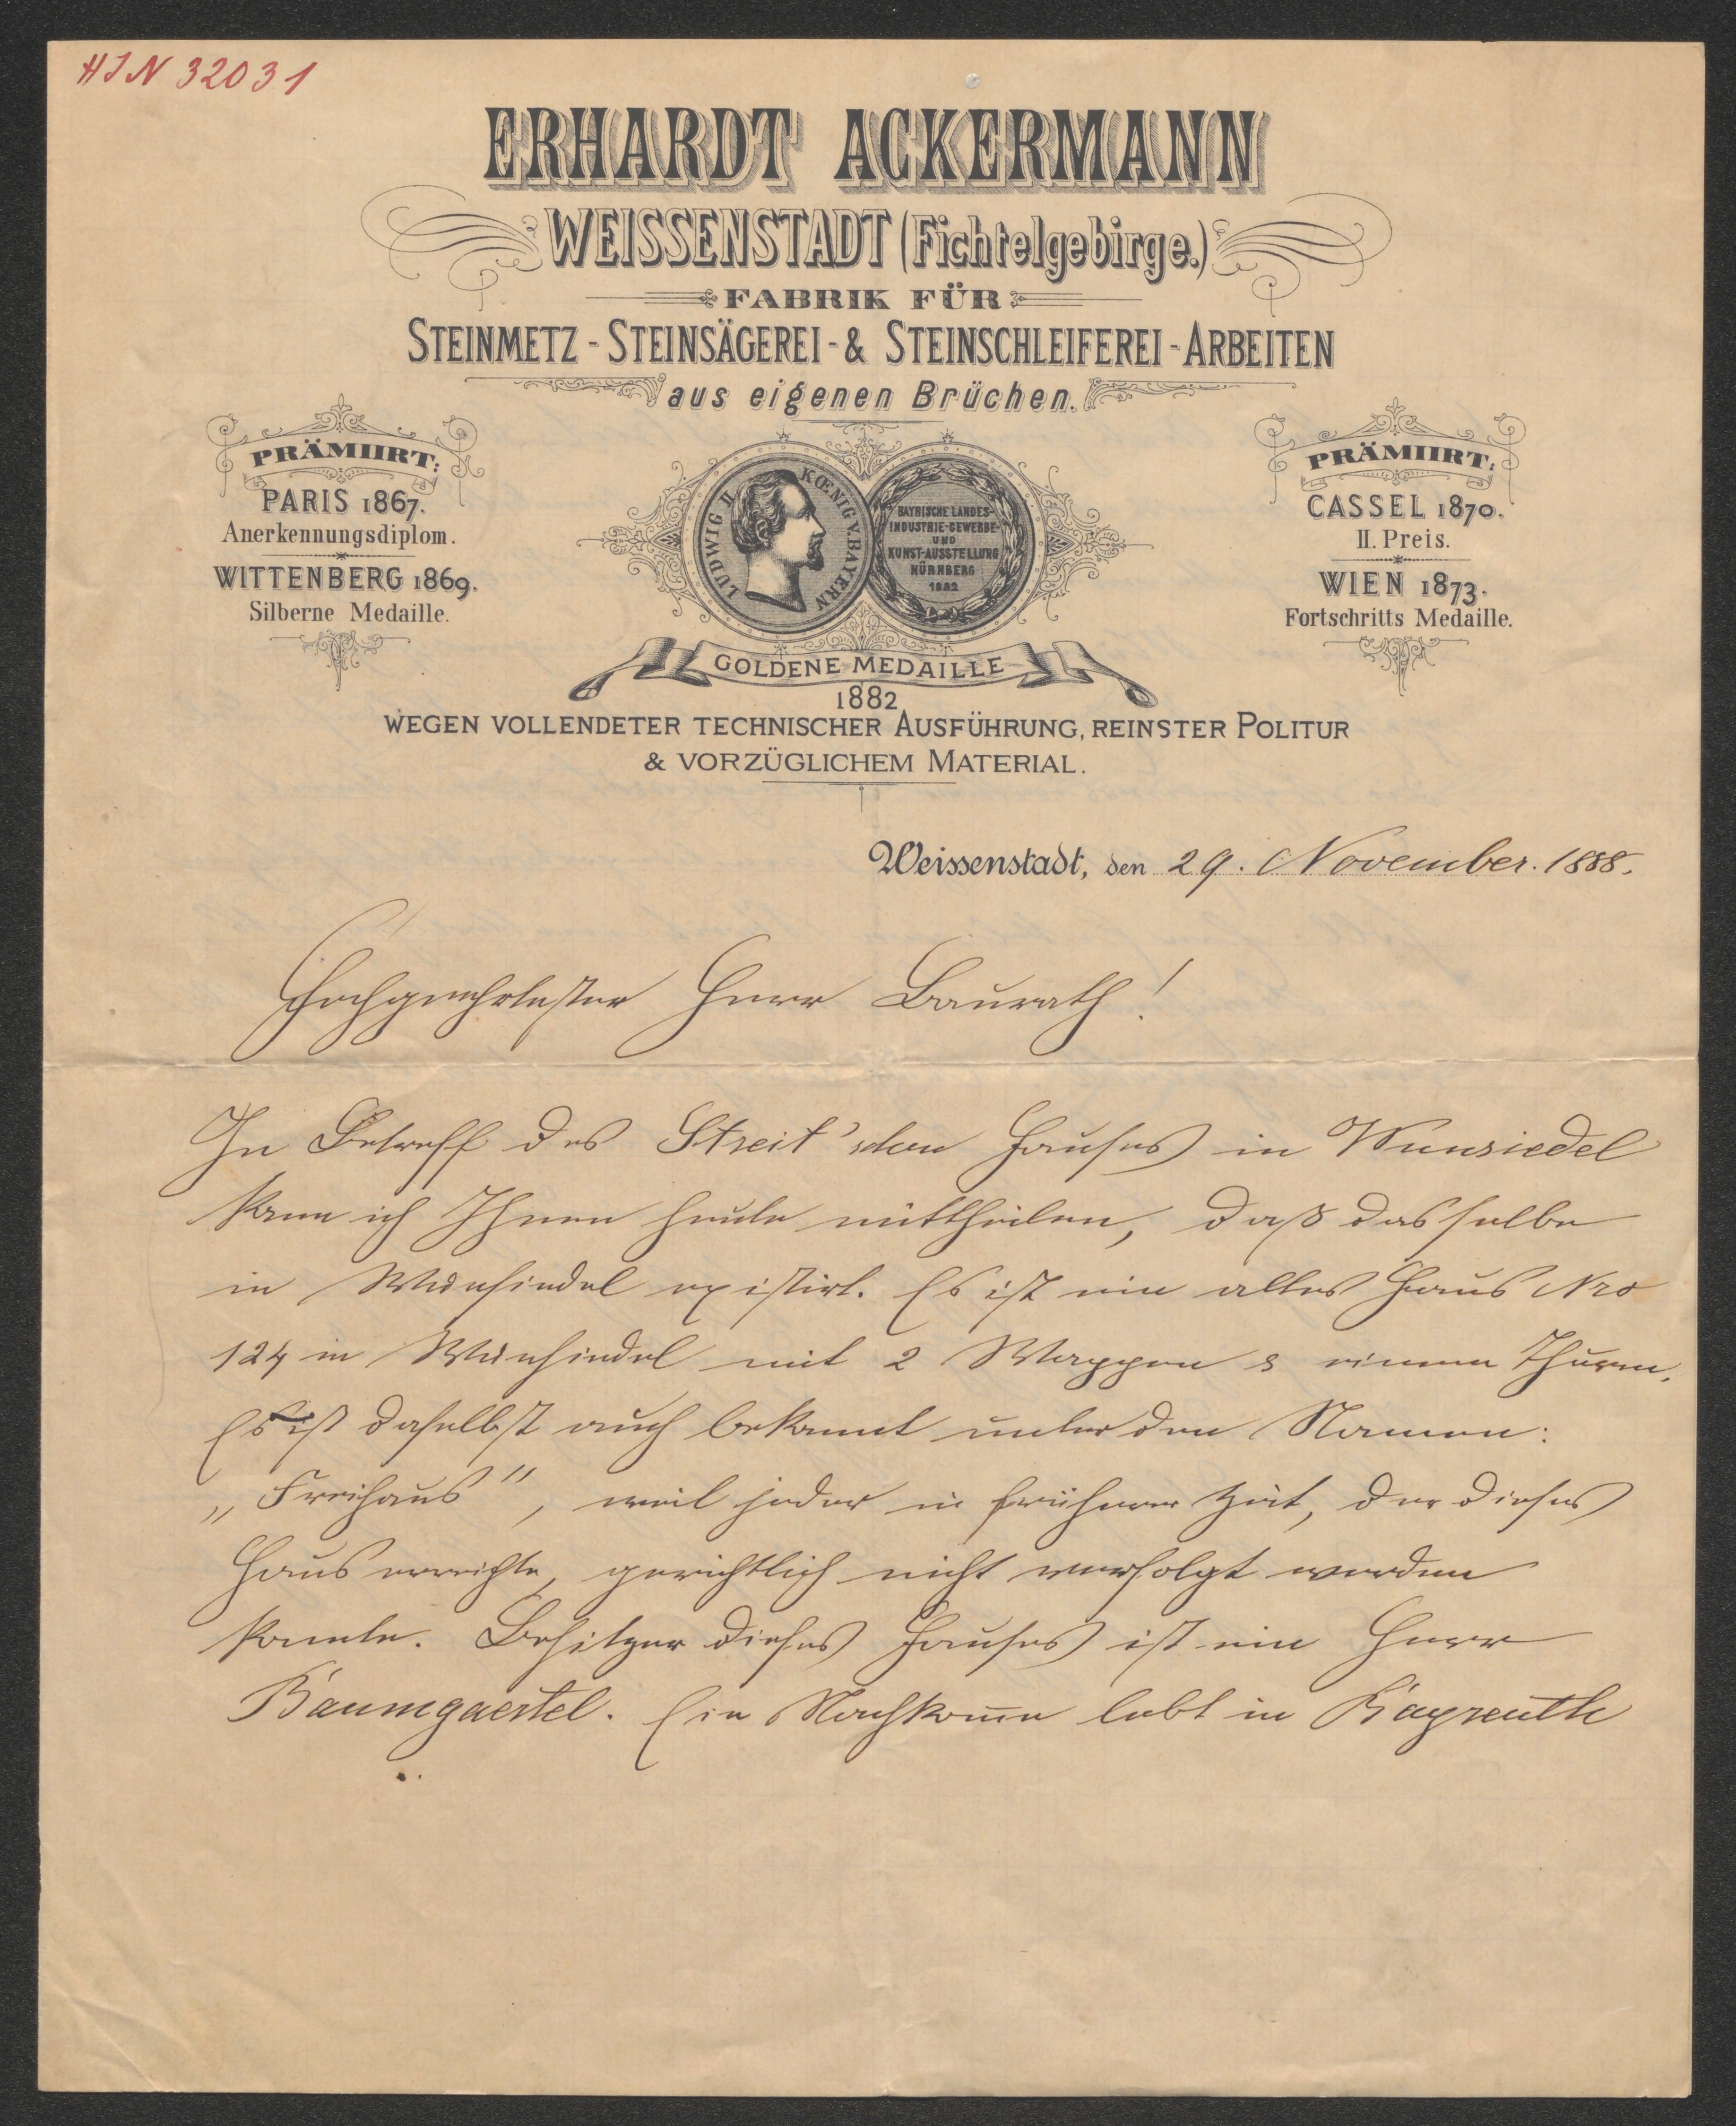 HIN 32031
ERHARDT ACKERMANN
WEISSENSTADT (Fichtelgebirge.)
FABRIK FÜR
STEINMETZ - STEINSÄGEREI - & STEINSCHLEIFEREI - ARBEITEN
aus eigenen Brüchen.
PRÄMIIRT:
PARIS 1867.
Anerkennungsdiplom.
WITTENBERG 1869.
Silberne Medaille.
LUDWIG II KŒNIG V. BAYERN
BAYRISCHE LANDES-
INDUSTRIE-GEWERBE-
UND
KUNST-AUSSTELLUNG
NÜRNBERG
1882
PRÄMIIRT:
CASSEL 1870.
II. Preis.
WIEN 1873.
Fortschritts Medaille.
GOLDENE MEDAILLE
1882
WEGEN VOLLENDETER TECHNISCHER AUSFÜHRUNG, REINSTER POLITUR
& VORZÜGLICHEM MATERIAL.
Weissenstadt, den 29. November. 1888.
Hochgeehrtester Herr Baurath!
In Betreff des Streit'schen Hauses in Wunsiedel
kann ich Ihnen heute mittheilen, daß dasselbe
in Wunsiedel existirt. Es ist ein altes Haus Nro
124 in Wunsiedel mit 2 Wappen & einem Thurm.
Es ist daselbst auch bekannt unter dem Namen:
„Freihaus", weil jeder in früherer Zeit, der dieses
Haus erreichte, gerichtlich nicht verfolgt werden
konnte. Besitzer dieses Hauses ist ein Herr
Baumgaertel. Ein Nachkom̅e lebt in Bayreuth